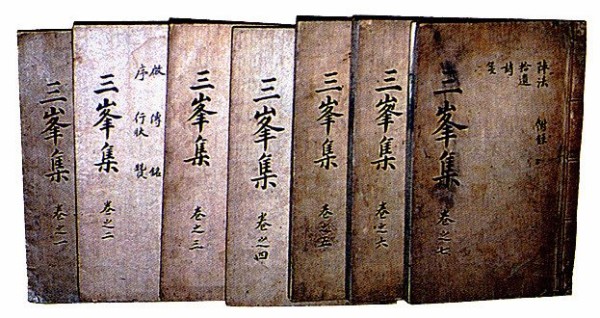 三峯集 卷之一
傳 銘
序 行狀
三峯集 卷之二
三峯集 卷之三
三峯集 卷之四
三峯集 卷之五
三峯集 卷之六
陣法 附錄
拾遺
詩
三峯集 卷之七